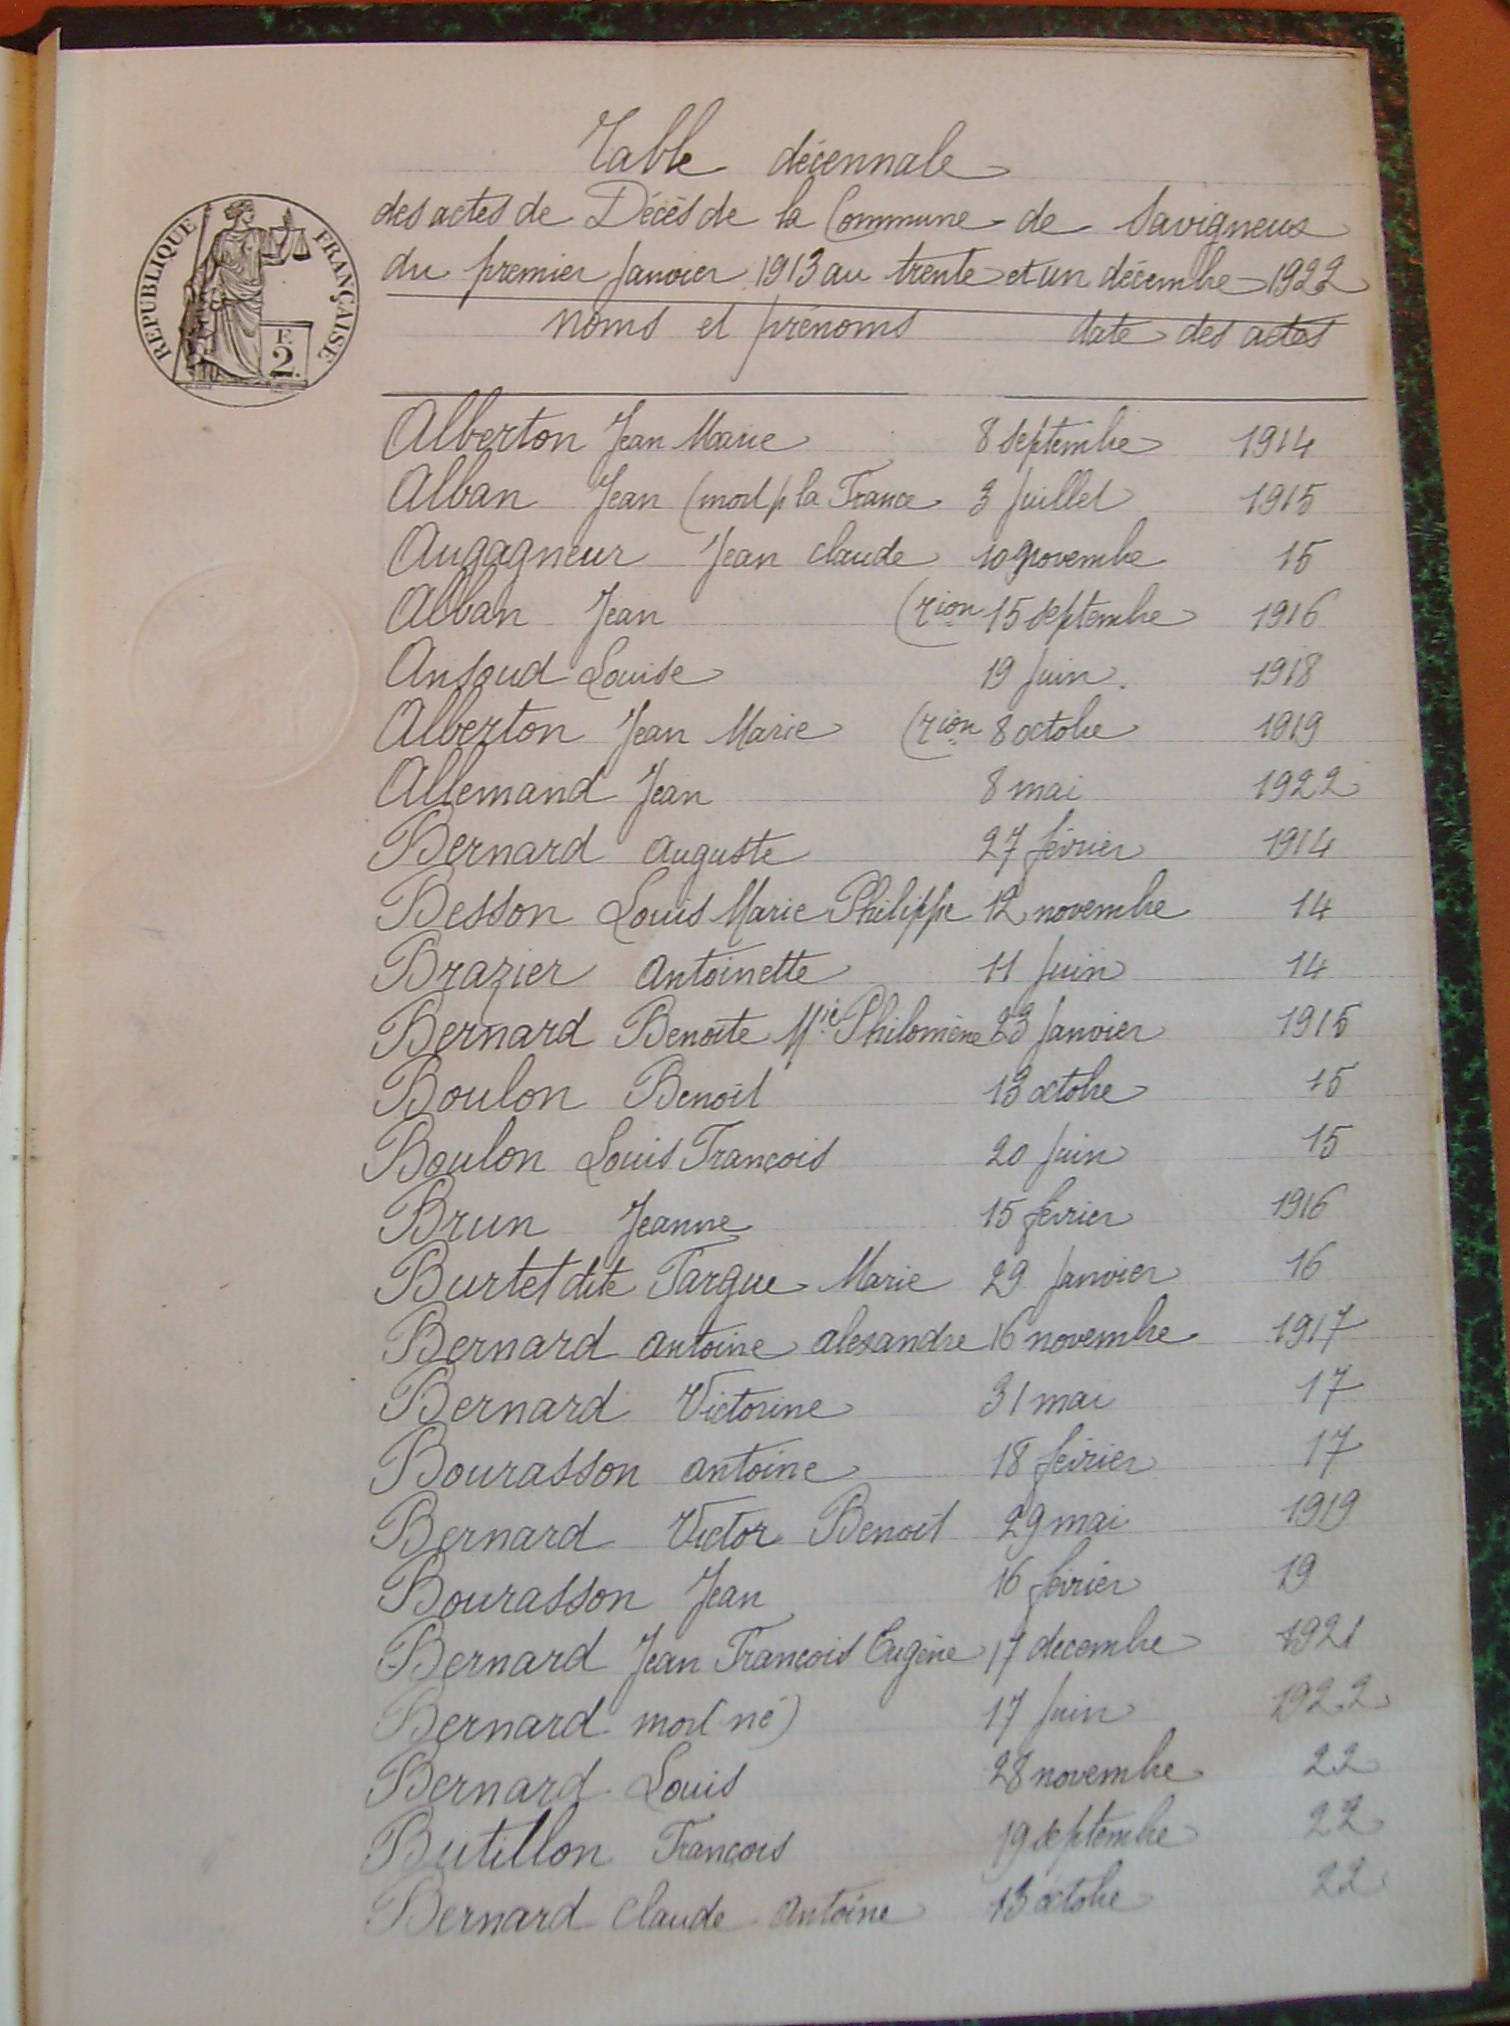 Table décennale
des actes de Décès de la Commune de Savigneux
du premier Janvier 1913 au trente et un décembre 1922
noms et prénoms date des actes
REPUBLIQUE FRANÇAISE
F.
2.
Alberton Jean Marie 8 septembre 1914
Alban Jean (mort p la France 3 Juillet 1915
Augagneur Jean claude 10 novembre 15
Alban Jean (rion 15 septembre 1916
Ansoud Louise 19 Juin. 1918
Alberton Jean Marie (rion 8 octobre 1919
Allemand Jean 8 mai 1922
Bernard Auguste 27 février 1914
Besson Louis Marie Philippe 12 novembre 14
Brazier Antoinette 11 Juin 14
Bernard Benoite Mie Philomène 23 Janvier 1915
Boulon Benoit 13 octobre 15
Boulon Louis François 20 Juin 15
Brun Jeanne 15 février 1916
Burtet dite Targue Marie 29 Janvier 16
Bernard Antoine alexandre 16 novembre 1917
Bernard Victorine 31 mai 17
Bourasson Antoine 18 février 17
Bernard Victor Benoit 29 mai 1919
Bourasson Jean 16 février 19
Bernard Jean François Eugène 17 decembre 1921
Bernard mort né) 17 Juin 1922
Bernard Louis 28 novembre 22
Butillon François 19 septembre 22
Bernard Claude Antoine 13 octobre 22